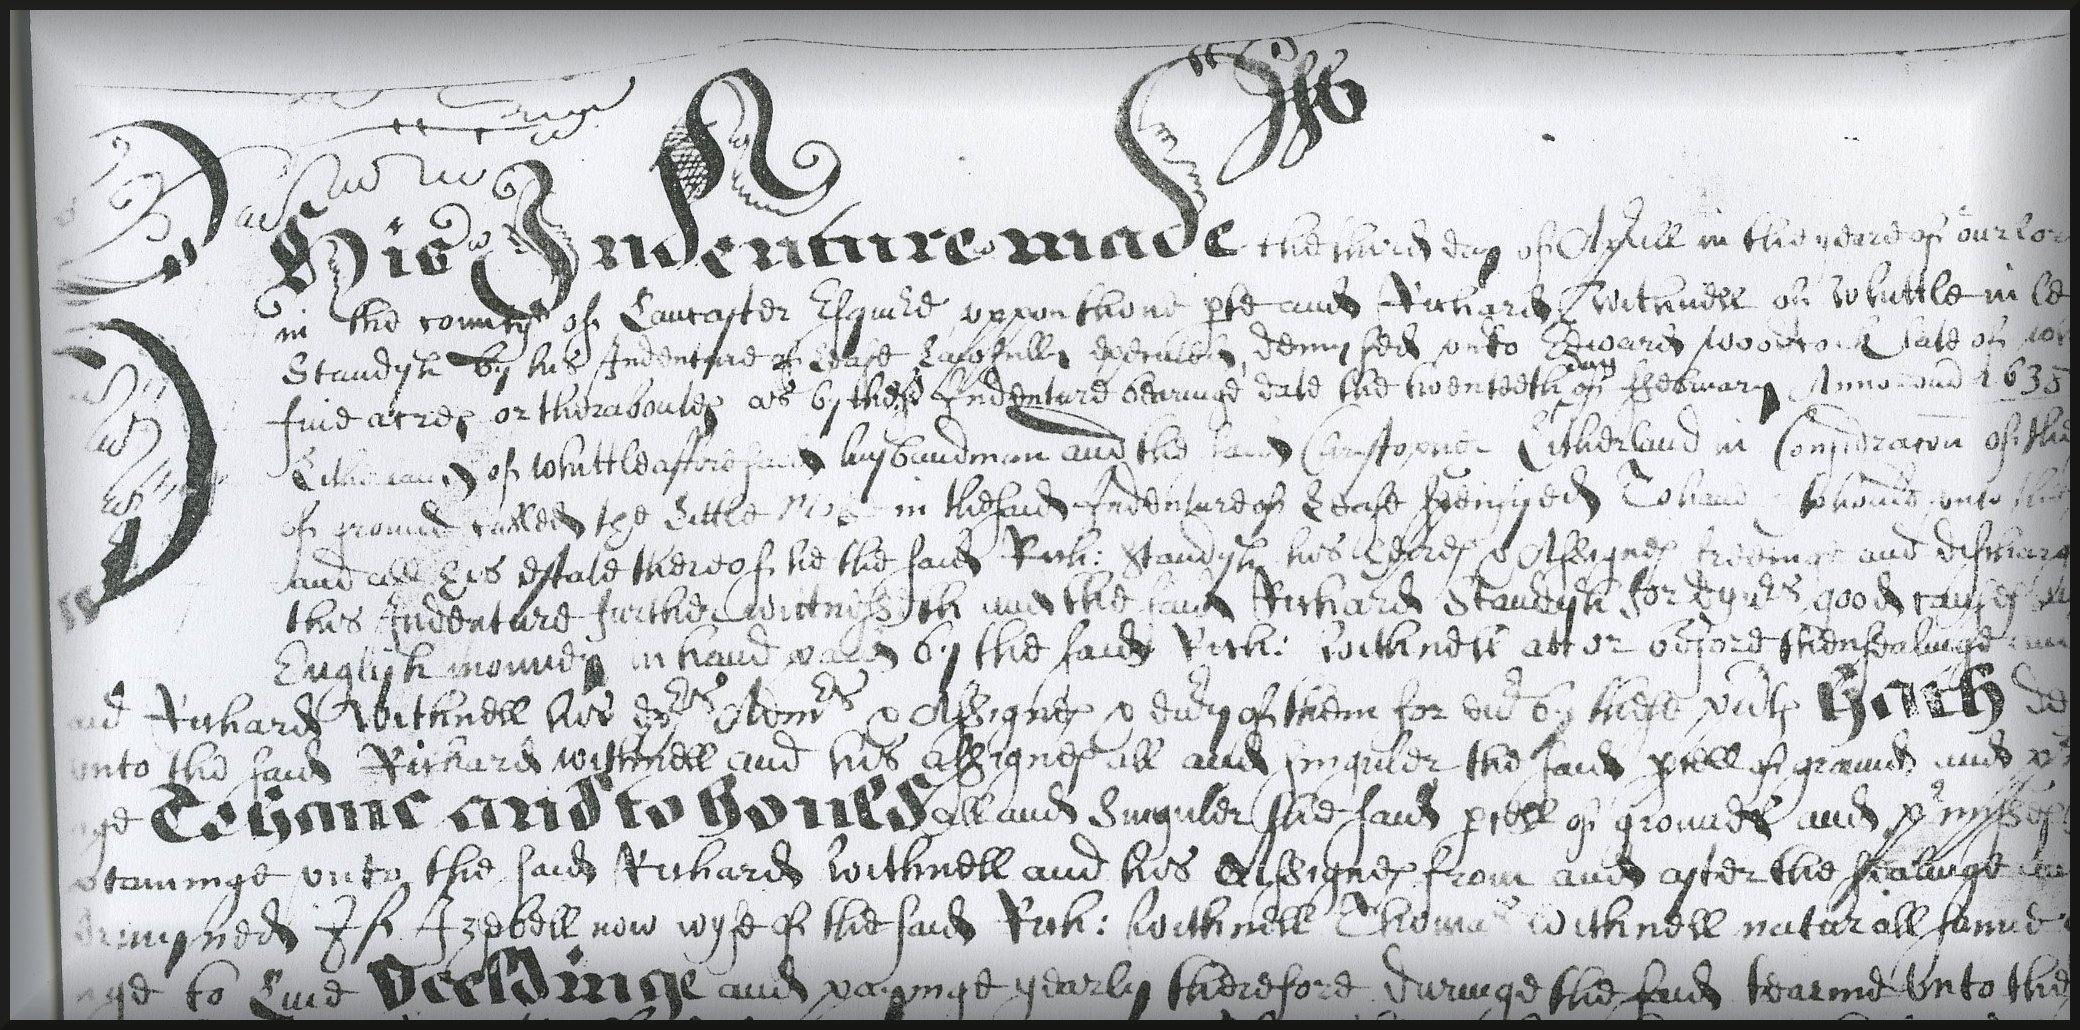 This Indenture made the third day of Aprill in the yeare of our Lor
in the county of Lancaster Esquire uppon thone pte and Richard Withnell of Whittle in le
Standysh by his Indenture of Lease Lawfully executed, demysed unto Edward Woodcock late of
day
five acres or theraboutes as by the sd Indenture bearinge date the twenteeth of February Anno dom 1635
Litherland of Whittle afforesaid husbandman and the said Christopher Litherland in Consideracon of the
of ground called the Little in the said Indenture of Lease To have to hould unto the
and all his estate thereof he the said Rich: Standysh his heires & Assignes freeinge and discharg
this Indenture further witnesseth that the said Richard Standysh for dyvers good causes
English money in hand payd by the said Rich: Withnell att or before thensealinge
aid Richard Withnell his exrs Admrs & Assignes & evry of them for evr by these psnts Hath de
unto the said Richard Withnell and his assignes all and singuler the said pcell of ground and
nge To have and to hould all and singuler the said pcell of ground and pmisses
unto the said Richard Withnell and his Assignes from and after the sealinge
If Izebell now wyfe of the said Rich: Withnell Thomas Withnell naturall sonne
nge to Live Yeeldinge and payinge yearly therefore duringe the said tearme unto the